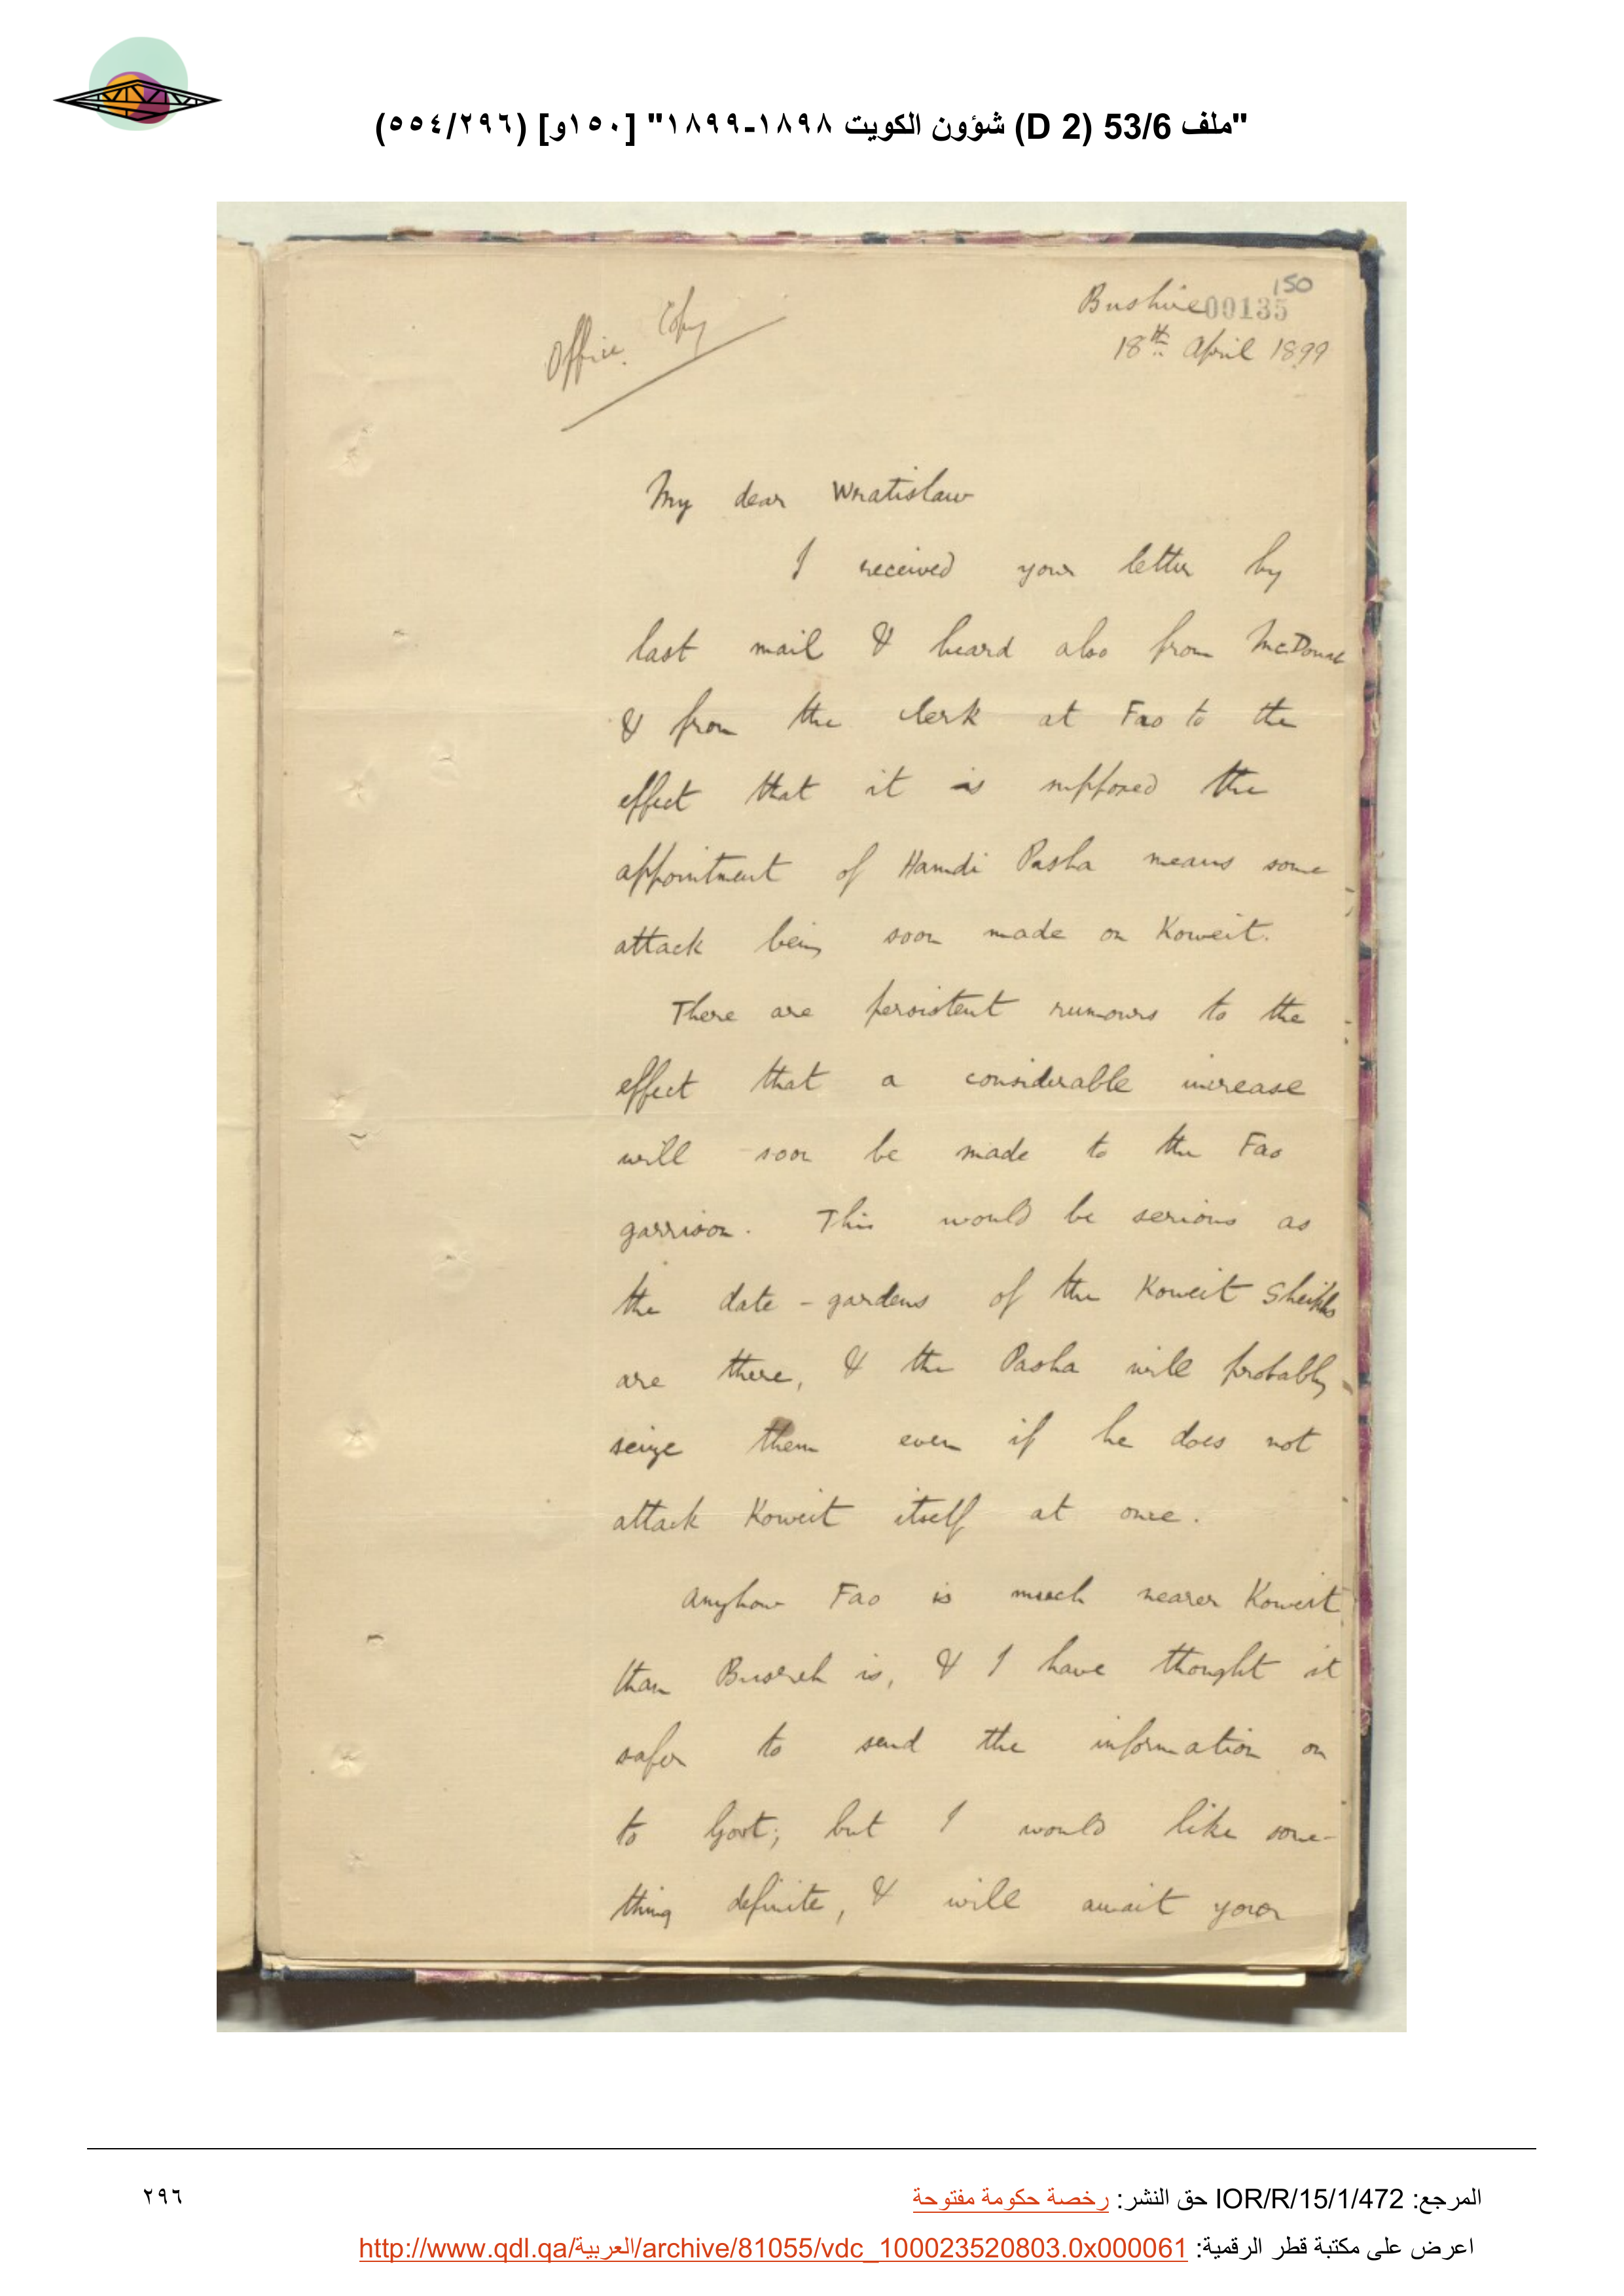 "ملف 53/6 (D 2) شؤون الكويت ١٨٩٨-١٨٩٩" [١٥٠و] (٢٩٦/٥٥٤)
150
Bushire 00135
18th April 1899
Office Copy
My dear Wratislaw
I received your letter by
last mail & heard also from
& from the clerk at Fao to the
effect that it is supposed the
appointment of Hamdi Pasha means some
attack being soon made on Koweit.
There are persistent rumours to the
effect that a considerable increase
will soon be made to the Fao
garrison. This would be serious as
the date-gardens of the Koweit Sheikhs
are there, & the Pasha will probably
seize them even if he does not
attack Koweit itself at once.
Anyhow Fao is much nearer Koweit
than Busreh is, & I have thought it
safer to send the information on
to Govt; but I would like some-
thing definite, & will await your
المرجع: IOR/R/15/1/472 حق النشر: رخصة حكومة مفتوحة
٢٩٦
اعرض على مكتبة قطر الرقمية: http://www.qdl.qa/العربية/archive/81055/vdc_100023520803.0x000061